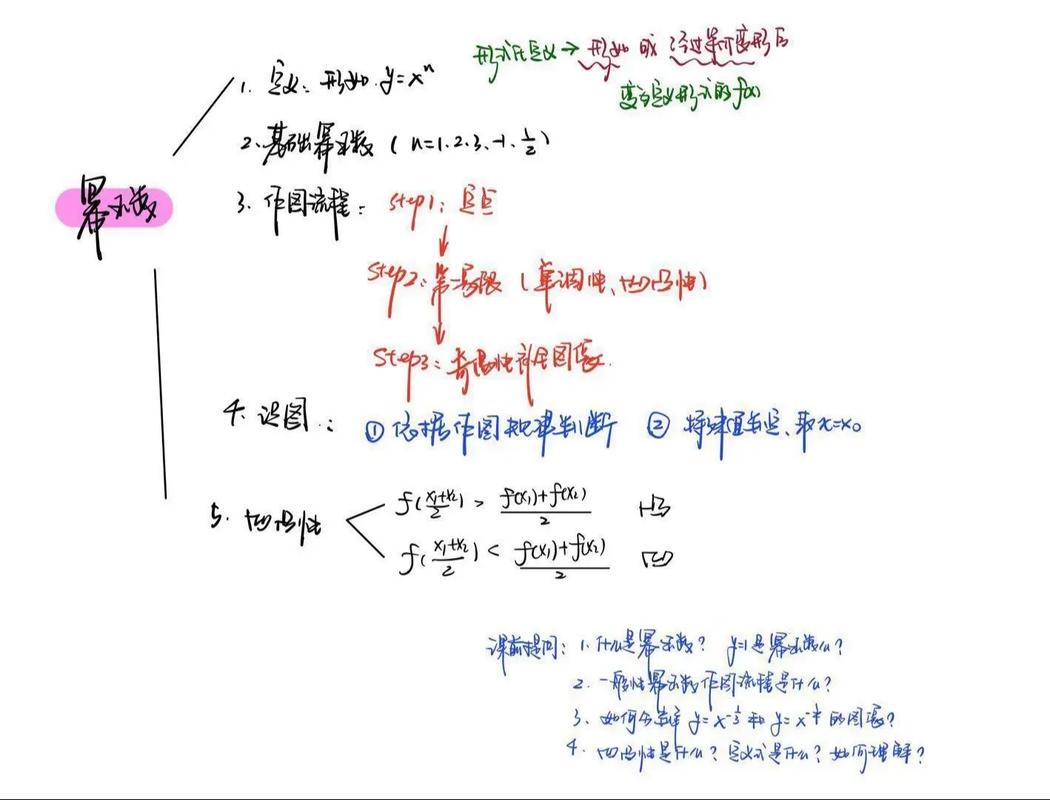 形式化定义→形如 或 经过等价变形后
变为定义形式的f(x)
幂函数
1. 定义: 形如 y=xⁿ
2. 基础幂函数 ( n=1.2.3.-1.½ )
3. 作图流程: Step1: 定点
Step2: 第一象限 (单调性、凹凸性)
Step3: 奇偶性补全图象.
4. 识图: ① 依据作图规律判断 ② 特殊值判定、取x=x₀
5. 凹凸性
f((x₁+x₂)/2) > (f(x₁)+f(x₂))/2 凸
f((x₁+x₂)/2) < (f(x₁)+f(x₂))/2 凹
课前提问: 1. 什么是幂函数? y=1是幂函数么?
2. 一般性幂函数作图流程是什么?
3. 如何 y= 和 y= 的图象?
4. 凹凸性是什么? 定义式是什么? 如何理解?